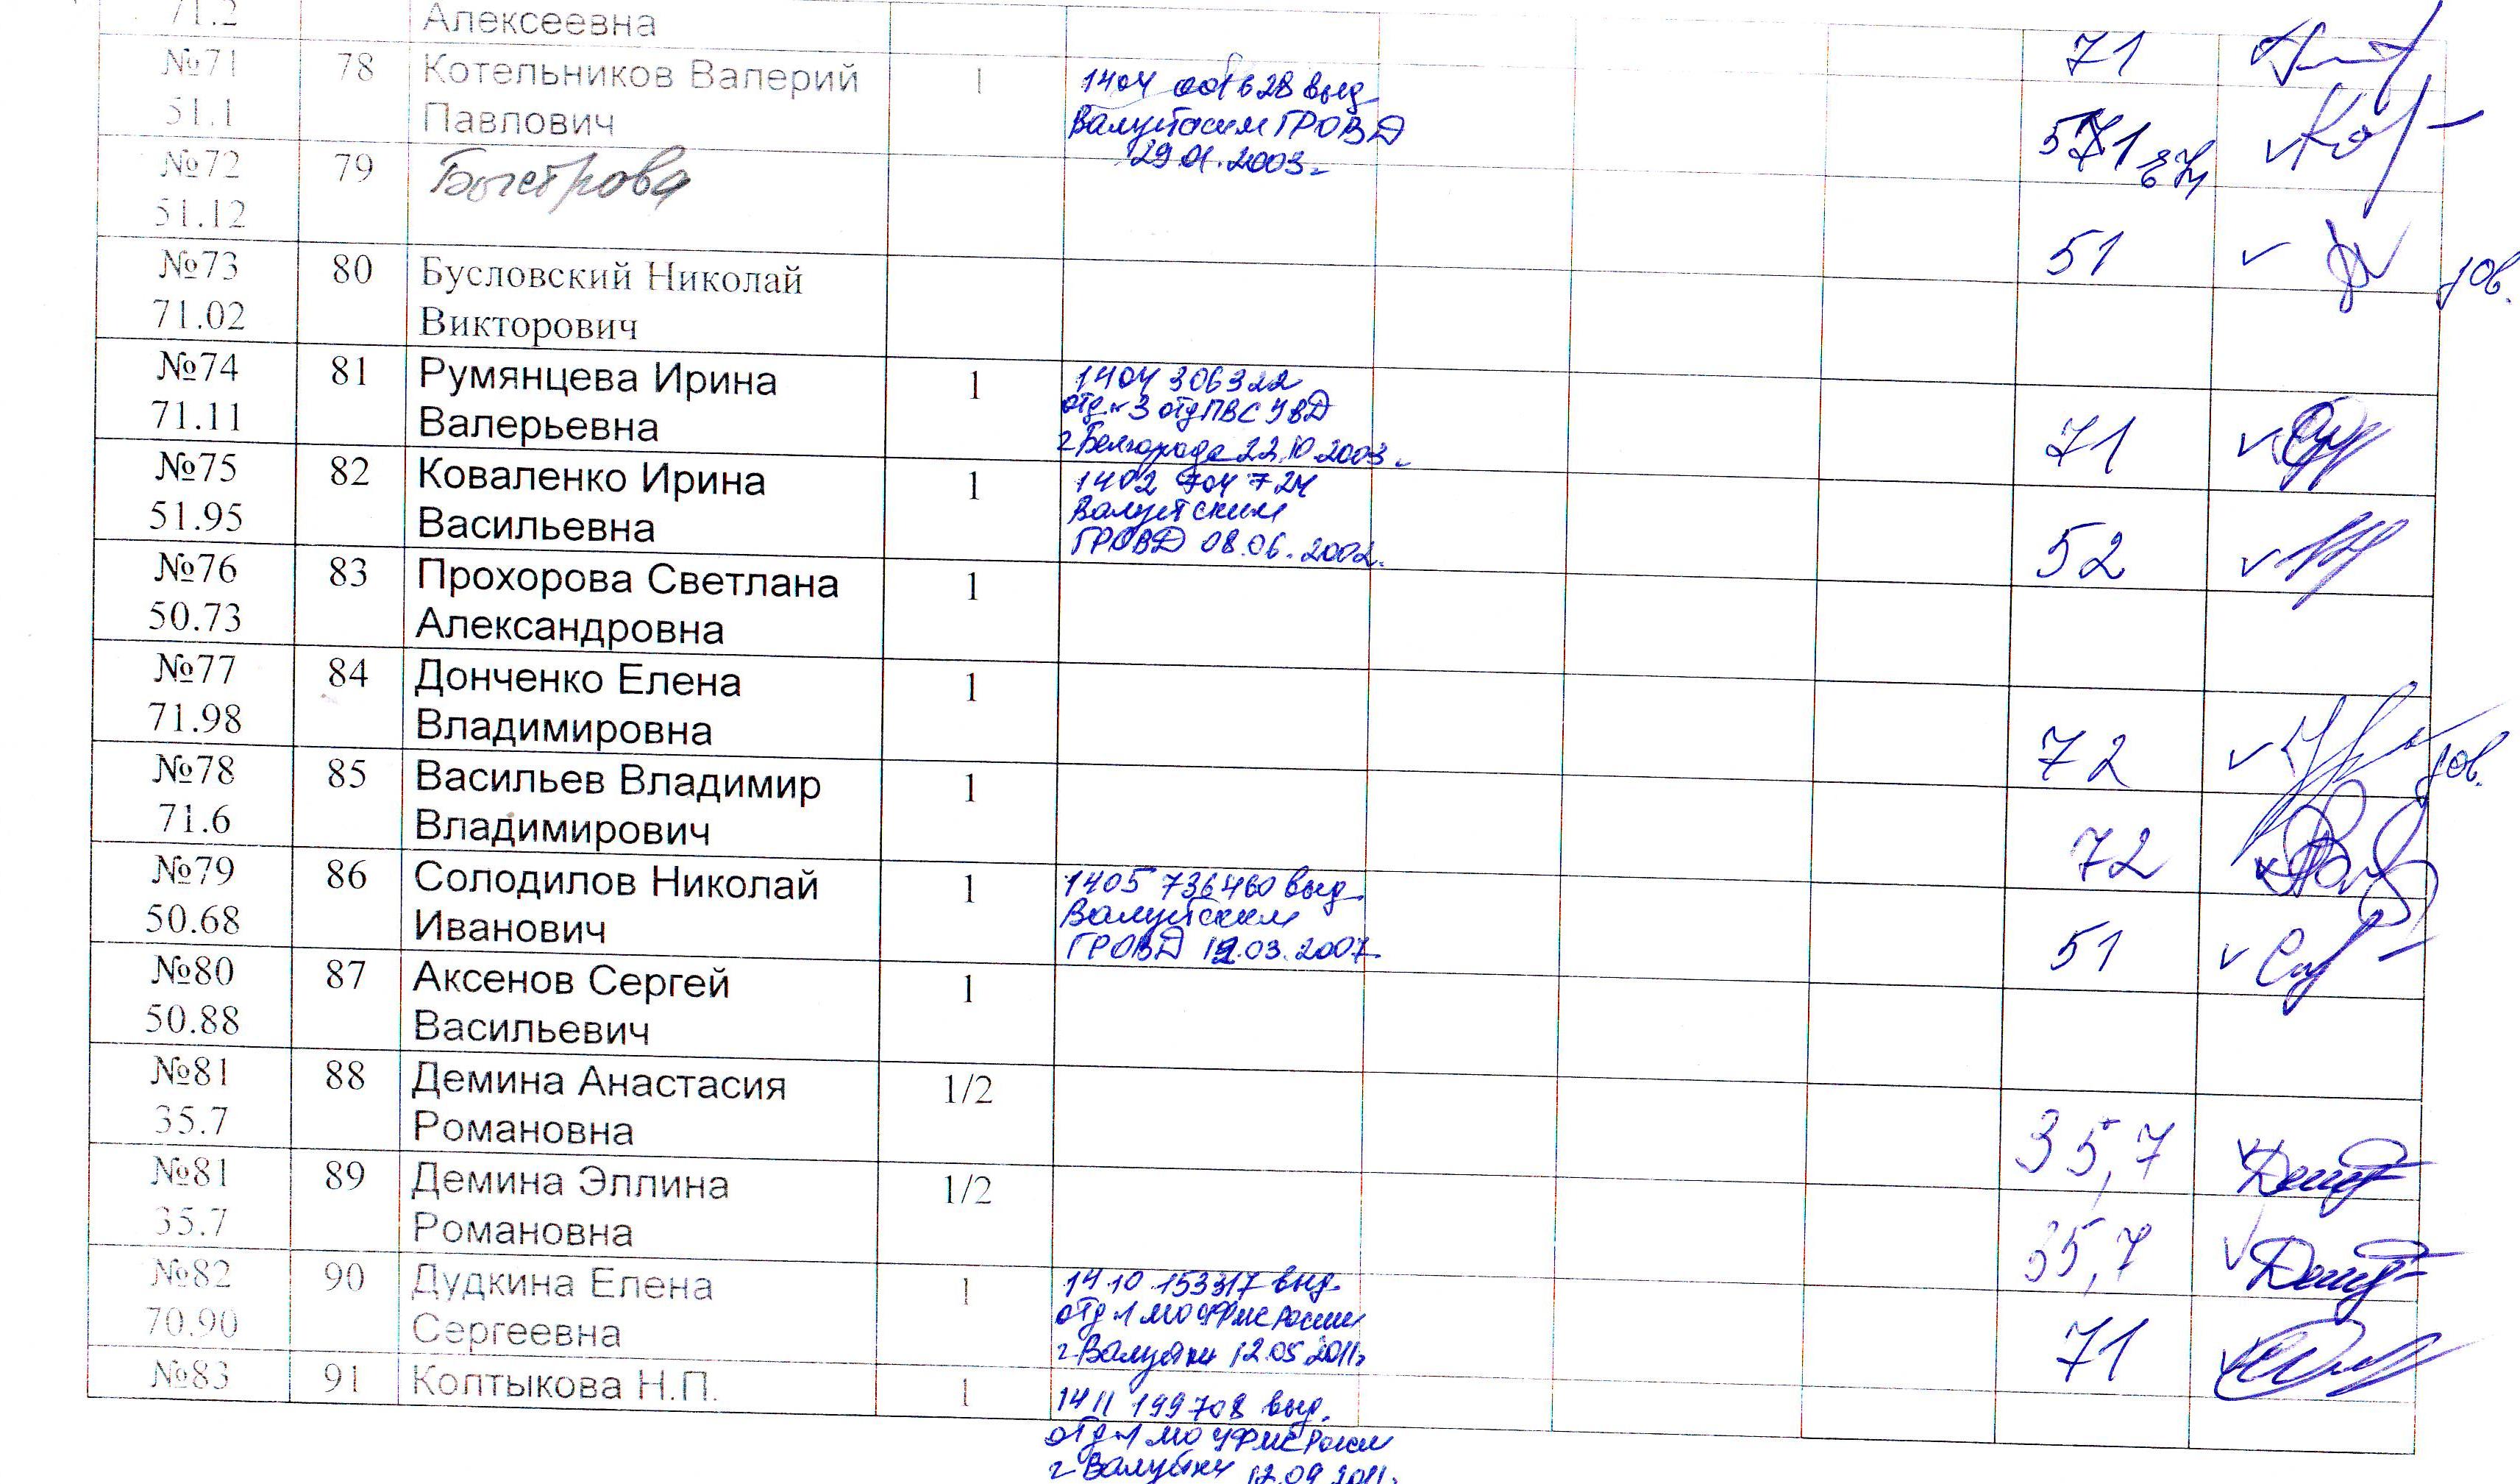 71.2 Алексеевна 71
№71 78 Котельников Валерий 1 1404 001628 выд.
51.1 Павлович Валуйским ГРОВД 571
29.01.2003г.
№72 79 Быстрова
51.12 51
№73 80 Бусловский Николай дов.
71.02 Викторович
№74 81 Румянцева Ирина 1 1404 306322
71.11 Валерьевна отд №3 отд ПВС УВД 71
г.Белгорода 22.10.2003г.
№75 82 Коваленко Ирина 1 1402 704724
51.95 Васильевна Валуйским 52
ГРОВД 08.06.2002.
№76 83 Прохорова Светлана 1
50.73 Александровна
№77 84 Донченко Елена 1
71.98 Владимировна 72 дов.
№78 85 Васильев Владимир 1
71.6 Владимирович 72
№79 86 Солодилов Николай 1 1405 736460 выд.
50.68 Иванович Валуйским
ГРОВД 12.03.2007 51
№80 87 Аксенов Сергей 1
50.88 Васильевич
№81 88 Демина Анастасия 1/2
35.7 Романовна 35,7
№81 89 Демина Эллина 1/2
35.7 Романовна 35,7
№82 90 Дудкина Елена 1 14 10 153317 выд.
70.90 Сергеевна отд 1 МО УФМС России 71
г.Валуйки 12.05.2011г
№83 91 Колтыкова Н.П. 1 14 11 199708 выд.
отд 1 МО УФМС России
г.Валуйки 12.09.2011г.